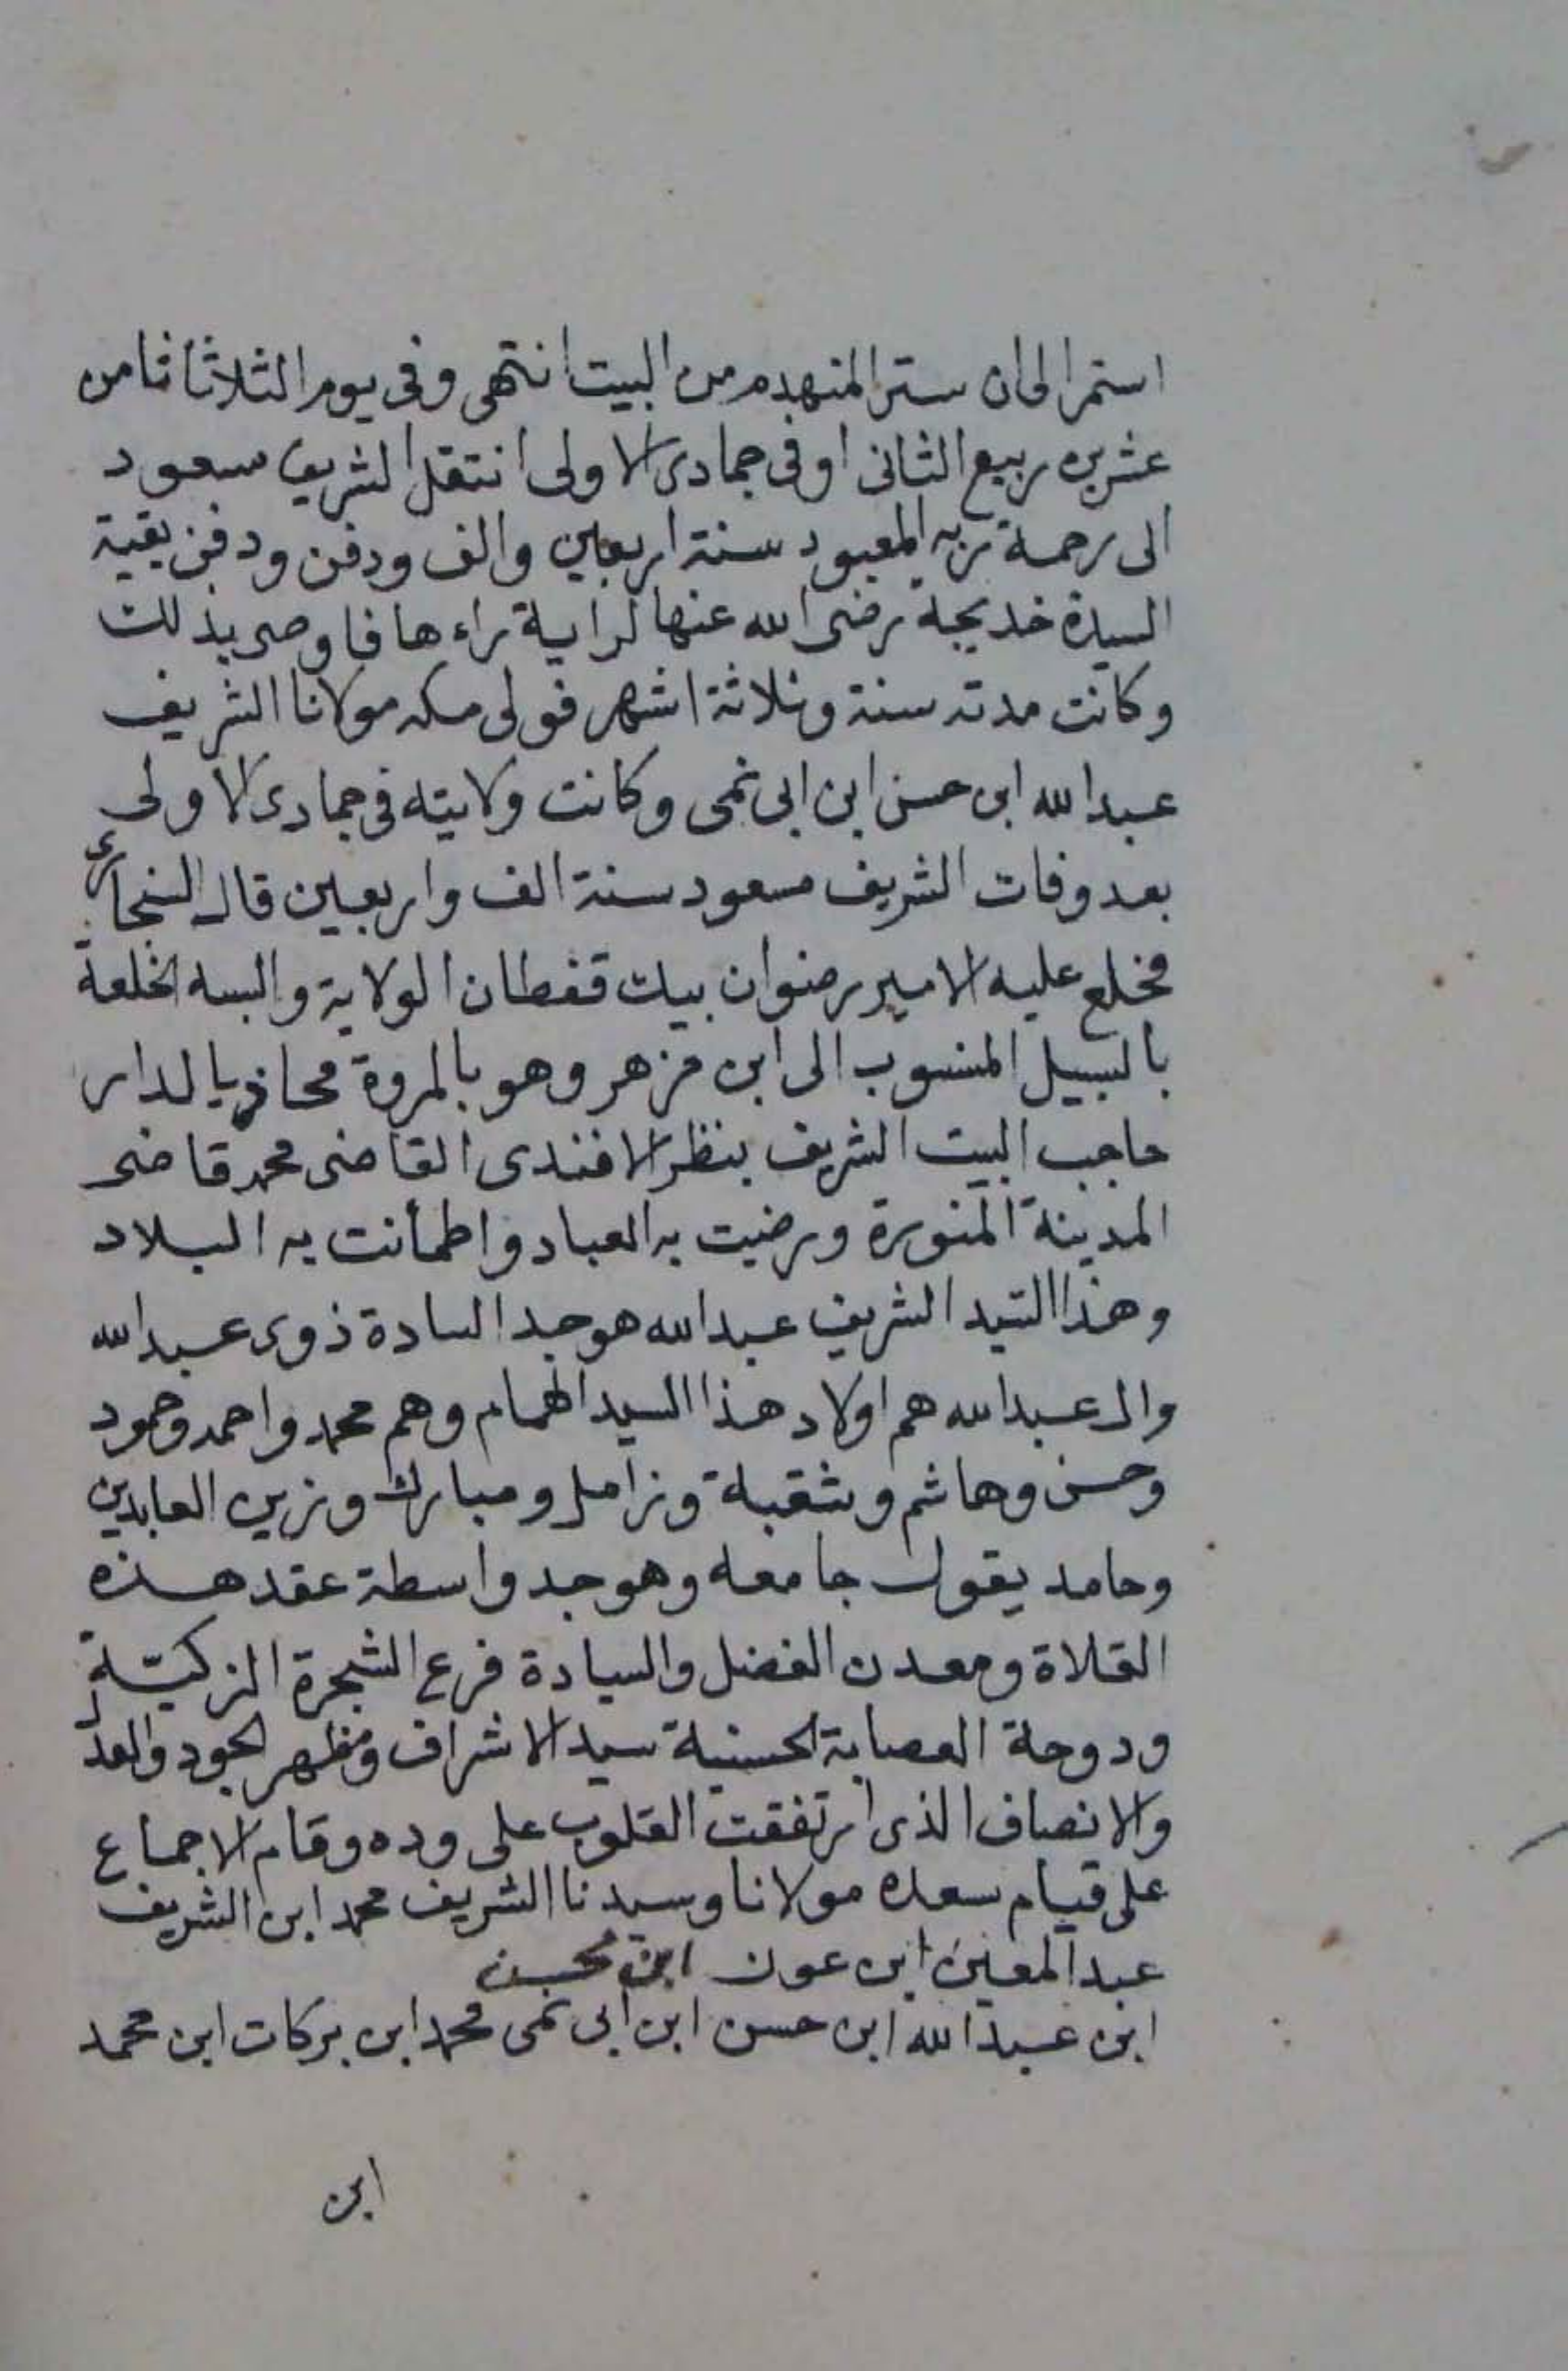 استمر الى ان ستر المنهدم من البيت انتهى وفى يوم الثلاثا ثامن
عشرين ربيع الثانى او فى جمادى الاولى انتقل الشريف سعود
الى رحمة ربه المعبود سنة اربعين والف ودفن ودفن بقية
السيدة خديجة رضى الله عنها لراية راءها فاوصى بذلك
وكانت مدته سنة وثلاثة اشهر فولى مكه مولانا الشريف
عبد الله ابن حسن ابن ابى نمى وكانت ولايته فى جمادى الاولى
بعد وفات الشريف مسعود سنة الف واربعين قال السنجارى
فخلع عليه الامير رضوان بيك قفطان الولاية والبسه الخلعة
بالسبيل المنسوب الى ابن مزهر وهو بالمروة محاذيا لدار
حاجب البيت الشريف بنظر الافندى القاضى محمد قاضى
المدينة المنورة ورضيت به العباد واطمأنت به البلاد
وهذا السّيد الشريف عبد الله هو جد السادة ذوى عبد الله
وال عبد الله هم اولاد هذا السيد الهمام وهم محمد واحمد وحمود
وحسن وهاشم وثقبة وزامل ومبارك وزين العابدين
وحامد يقول جامعه وهو جد واسطة عقد هذه
القلادة ومعدن الفضل والسيادة فرع الشجرة الزكيّة
ودوحة العصابة الحسنية سيد الاشراف ومظهر الجود والعدل
والانصاف الذى ارتفقت القلوب على وده وقام الاجماع
على قيام سعده مولانا وسيدنا الشريف محمد ابن الشريف
عبد المعين ابن عون ابن محسن
ابن عبد الله ابن حسن ابن ابى نمى محمد ابن بركات ابن محمد
ابن